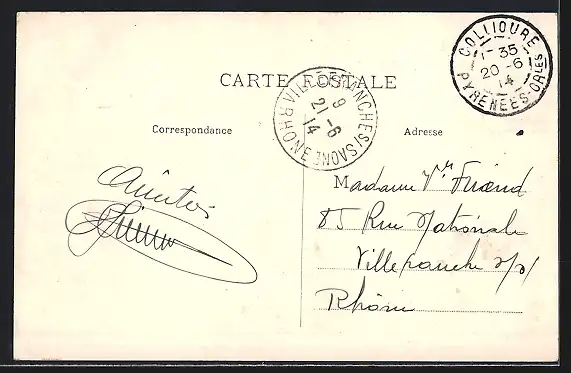 CARTE POSTALE
COLLIOURE
1 35
20 -6
14
PYRÉNÉES-ORLES
VILLEFRANCHE S/SAONE
9
21 -6
14
RHONE
Correspondance
Adresse
Amitiés
Madame Vve
85 Rue Nationale
Villefranche s/s/
Rhône